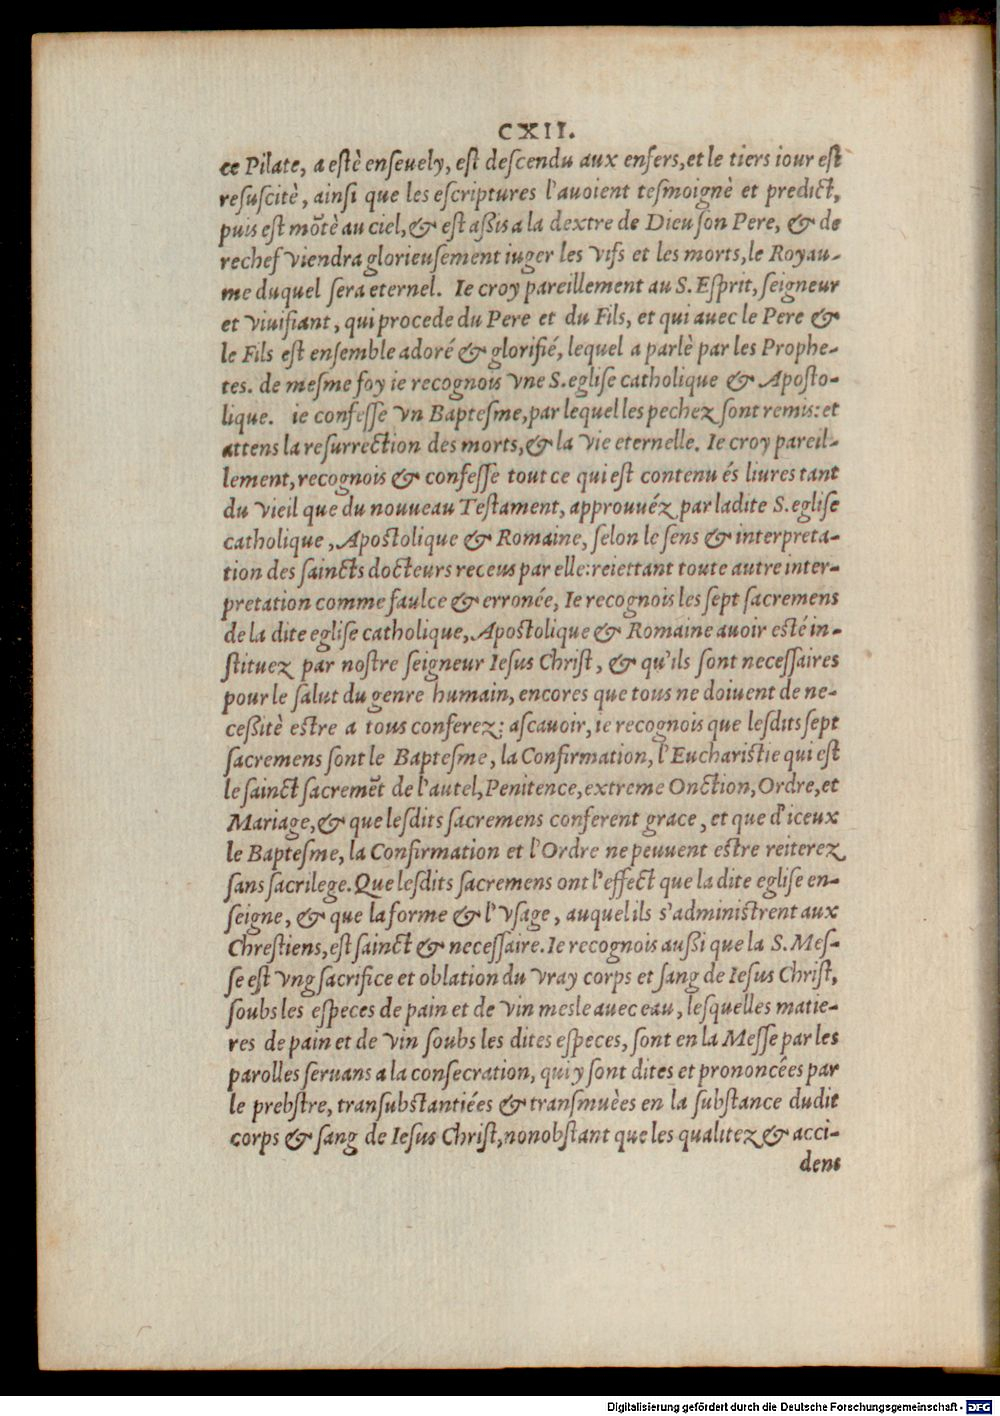 CXII.
ce Pilate, a estè enseuely, est descendu aux enfers, et le tiers iour est
resuscitè, ainsi que les escriptures l'auoient tesmoignè et predict,
puis est mõtè au ciel, & est aßis a la dextre de Dieu son Pere, & de
rechef viendra glorieusement iuger les vifs et les morts, le Royau-
me duquel sera eternel. Ie croy pareillement au S. Esprit, seigneur
et viuifiant, qui procede du Pere et du Fils, et qui auec le Pere &
le Fils est ensemble adoré & glorifié, lequel a parlè par les Prophe-
tes. de mesme foy ie recognois vne S. eglise catholique & Aposto-
lique. ie confesse vn Baptesme, par lequel les pechez sont remis: et
attens la resurrection des morts, & la vie eternelle. Ie croy pareil-
lement, recognois & confesse tout ce qui est contenu és liures tant
du vieil que du nouueau Testament, approuuéz par ladite S. eglise
catholique, Apostolique & Romaine, selon le sens & interpreta-
tion des saincts docteurs receus par elle: reiettant toute autre inter-
pretation comme faulce & erronée, Ie recognois les sept sacremens
de la dite eglise catholique, Apostolique & Romaine auoir esté in-
stituez par nostre seigneur Iesus Christ, & qu'ils sont necessaires
pour le salut du genre humain, encores que tous ne doiuent de ne-
ceßitè estre a tous conferez: ascauoir, ie recognois que lesdits sept
sacremens sont le Baptesme, la Confirmation, l'Eucharistie qui est
le sainct sacremẽt de l'autel, Penitence, extreme Onction, Ordre, et
Mariage, & que lesdits sacremens conferent grace, et que d'iceux
le Baptesme, la Confirmation et l'Ordre ne peuuent estre reiterez
sans sacrilege. Que lesdits sacremens ont l'effect que la dite eglise en-
seigne, & que la forme & l'vsage, auquel ils s'administrent aux
Chrestiens, est sainct & necessaire. Ie recognois außi que la S. Mes-
se est vng sacrifice et oblation du vray corps et sang de Iesus Christ,
soubs les especes de pain et de vin mesle auec eau, lesquelles matie-
res de pain et de vin soubs les dites especes, sont en la Messe par les
parolles seruans a la consecration, qui y sont dites et prononcées par
le prebstre, transubstantiées & transmuèes en la substance dudit
corps & sang de Iesus Christ, nonobstant que les qualitez & acci-
dens
Digitalisierung gefördert durch die Deutsche Forschungsgemeinschaft - DFG